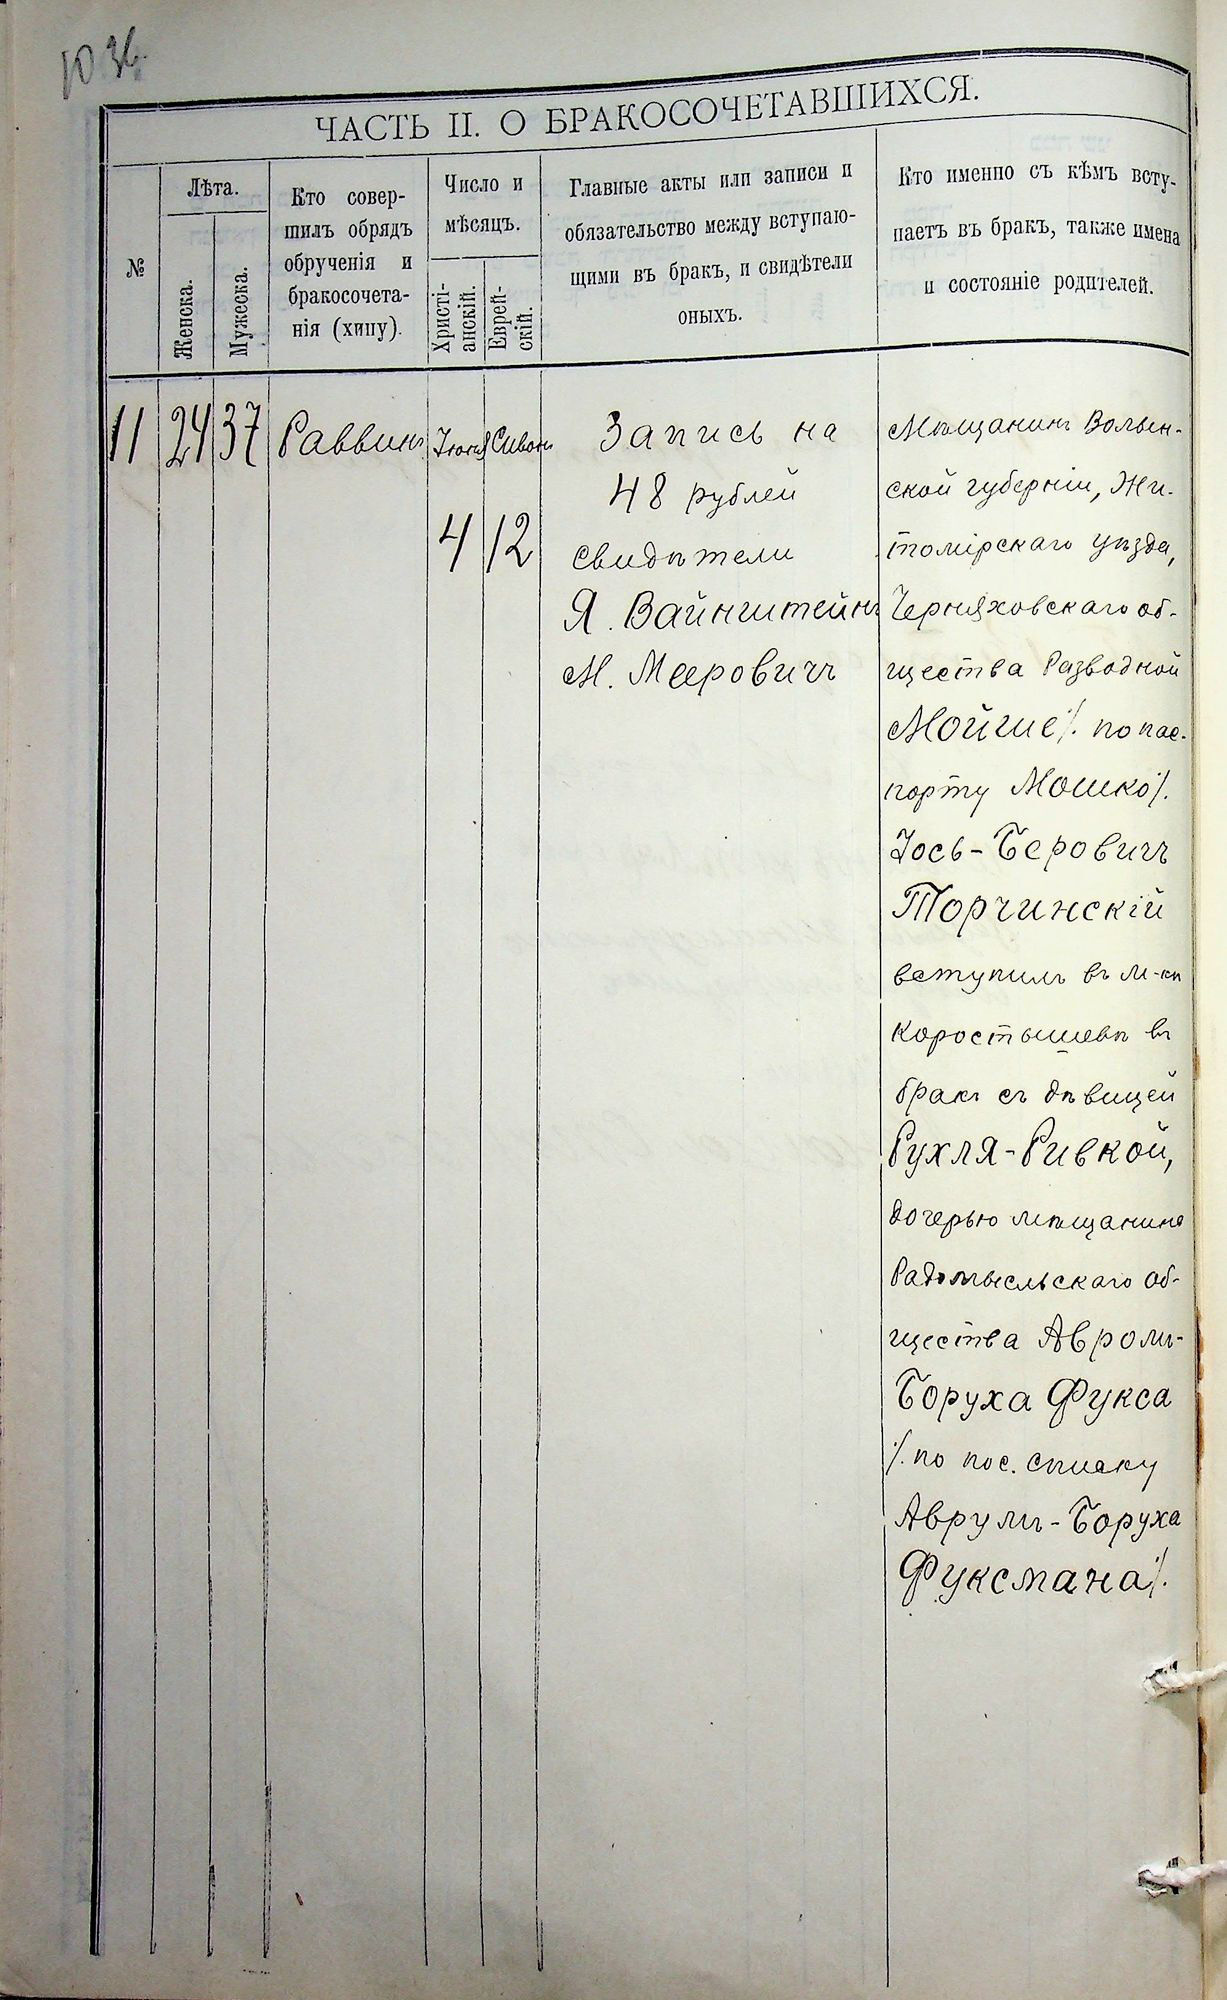 1036.
ЧАСТЬ II. О БРАКОСОЧЕТАВШИХСЯ.
№
Лѣта.
Женска.
Мужеска.
Кто совер-
шилъ обрядъ
обрученія и
бракосочета-
нія (хипу).
Число и
мѣсяцъ.
Христі-
анскій.
Еврей-
скій.
Главные акты или записи и
обязательство между вступаю-
щими въ бракъ, и свидѣтели
оныхъ.
Кто именно съ кѣмъ всту-
паетъ въ бракъ, также имена
и состояніе родителей.
11
24
37
Раввинъ
Іюня
4
Сивонъ
12
Запись на
48 рублей
Свидѣтели
Я. Вайнштейнъ
М. Мееровичъ
Мѣщанинъ Волын-
ской губерніи, Жи-
томірскаго уѣзда,
Черняховскаго об-
щества Разводной
Мойше /. по пас-
порту Мошко /.
Іось-Беровичъ
Торчинскій
вступилъ въ м-кѣ
Коростышевѣ въ
бракъ съ дѣвицей
Рухля-Ривкой,
дочерью мѣщанина
Радомысльскаго об-
щества Авромъ-
Боруха Фукса
/. по пос. списку
Аврумъ-Боруха
Фуксмана /.